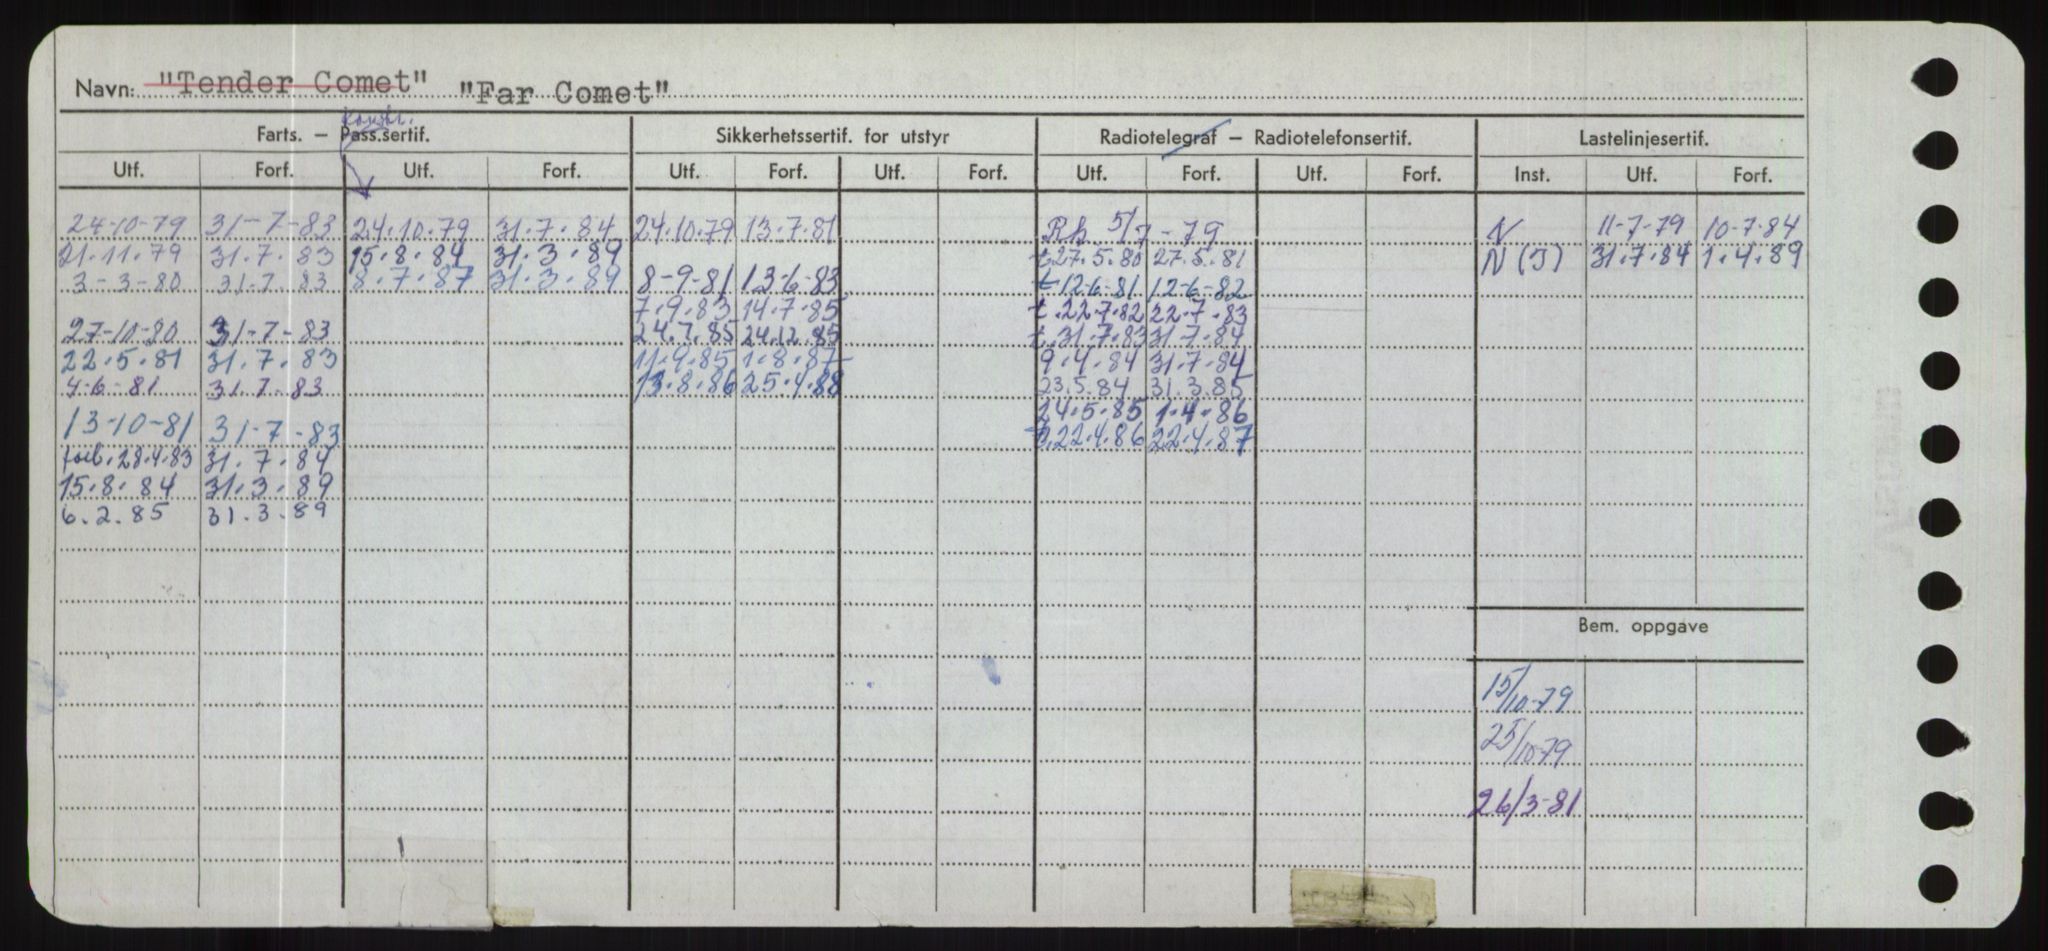 Navn: "Tender Comet" "Far Comet"
Konstr.
Farts. – Pass.sertif. Sikkerhetssertif. for utstyr Radiotelegraf – Radiotelefonsertif. Lastelinjesertif.
Utf. Forf. Utf. Forf. Utf. Forf. Utf. Forf. Utf. Forf. Utf. Forf. Inst. Utf. Forf.
24-10-79 31-7-83 24.10.79 31.7.84 24.10.79 13.7.81 Rh 5/7-79 N 11-7-79 10-7-84
21.11.79 31.7.83 15.8.84 31.3.89 t.27.5.80 27.5.81 N (I) 31.7.84 1.4.89
3-3-80 31.7.83 8.7.87 31.3.89 8-9-81 13-6-83 t-12-6-81 12-6-82
7.9.83 14.7.85 t.22.7.82 22.7.83
27-10-80 31-7-83 24.7.85 24.12.85 t.31.7.83 31.7.84
22.5.81 31.7.83 11.9.85 1.8.87 9.4.84 31.7.84
4-6-81 31.7.83 13.8.86 25.4.88 23.5.84 31.3.85
13-10-81 31-7-83 24.5.85 1.4.86
28.4.83 31.7.84 t.22.4.86 22.4.87
15.8.84 31.3.89
6.2.85 31.3.89
Bem. oppgave
15/10-79
25/10-79
26/3-81